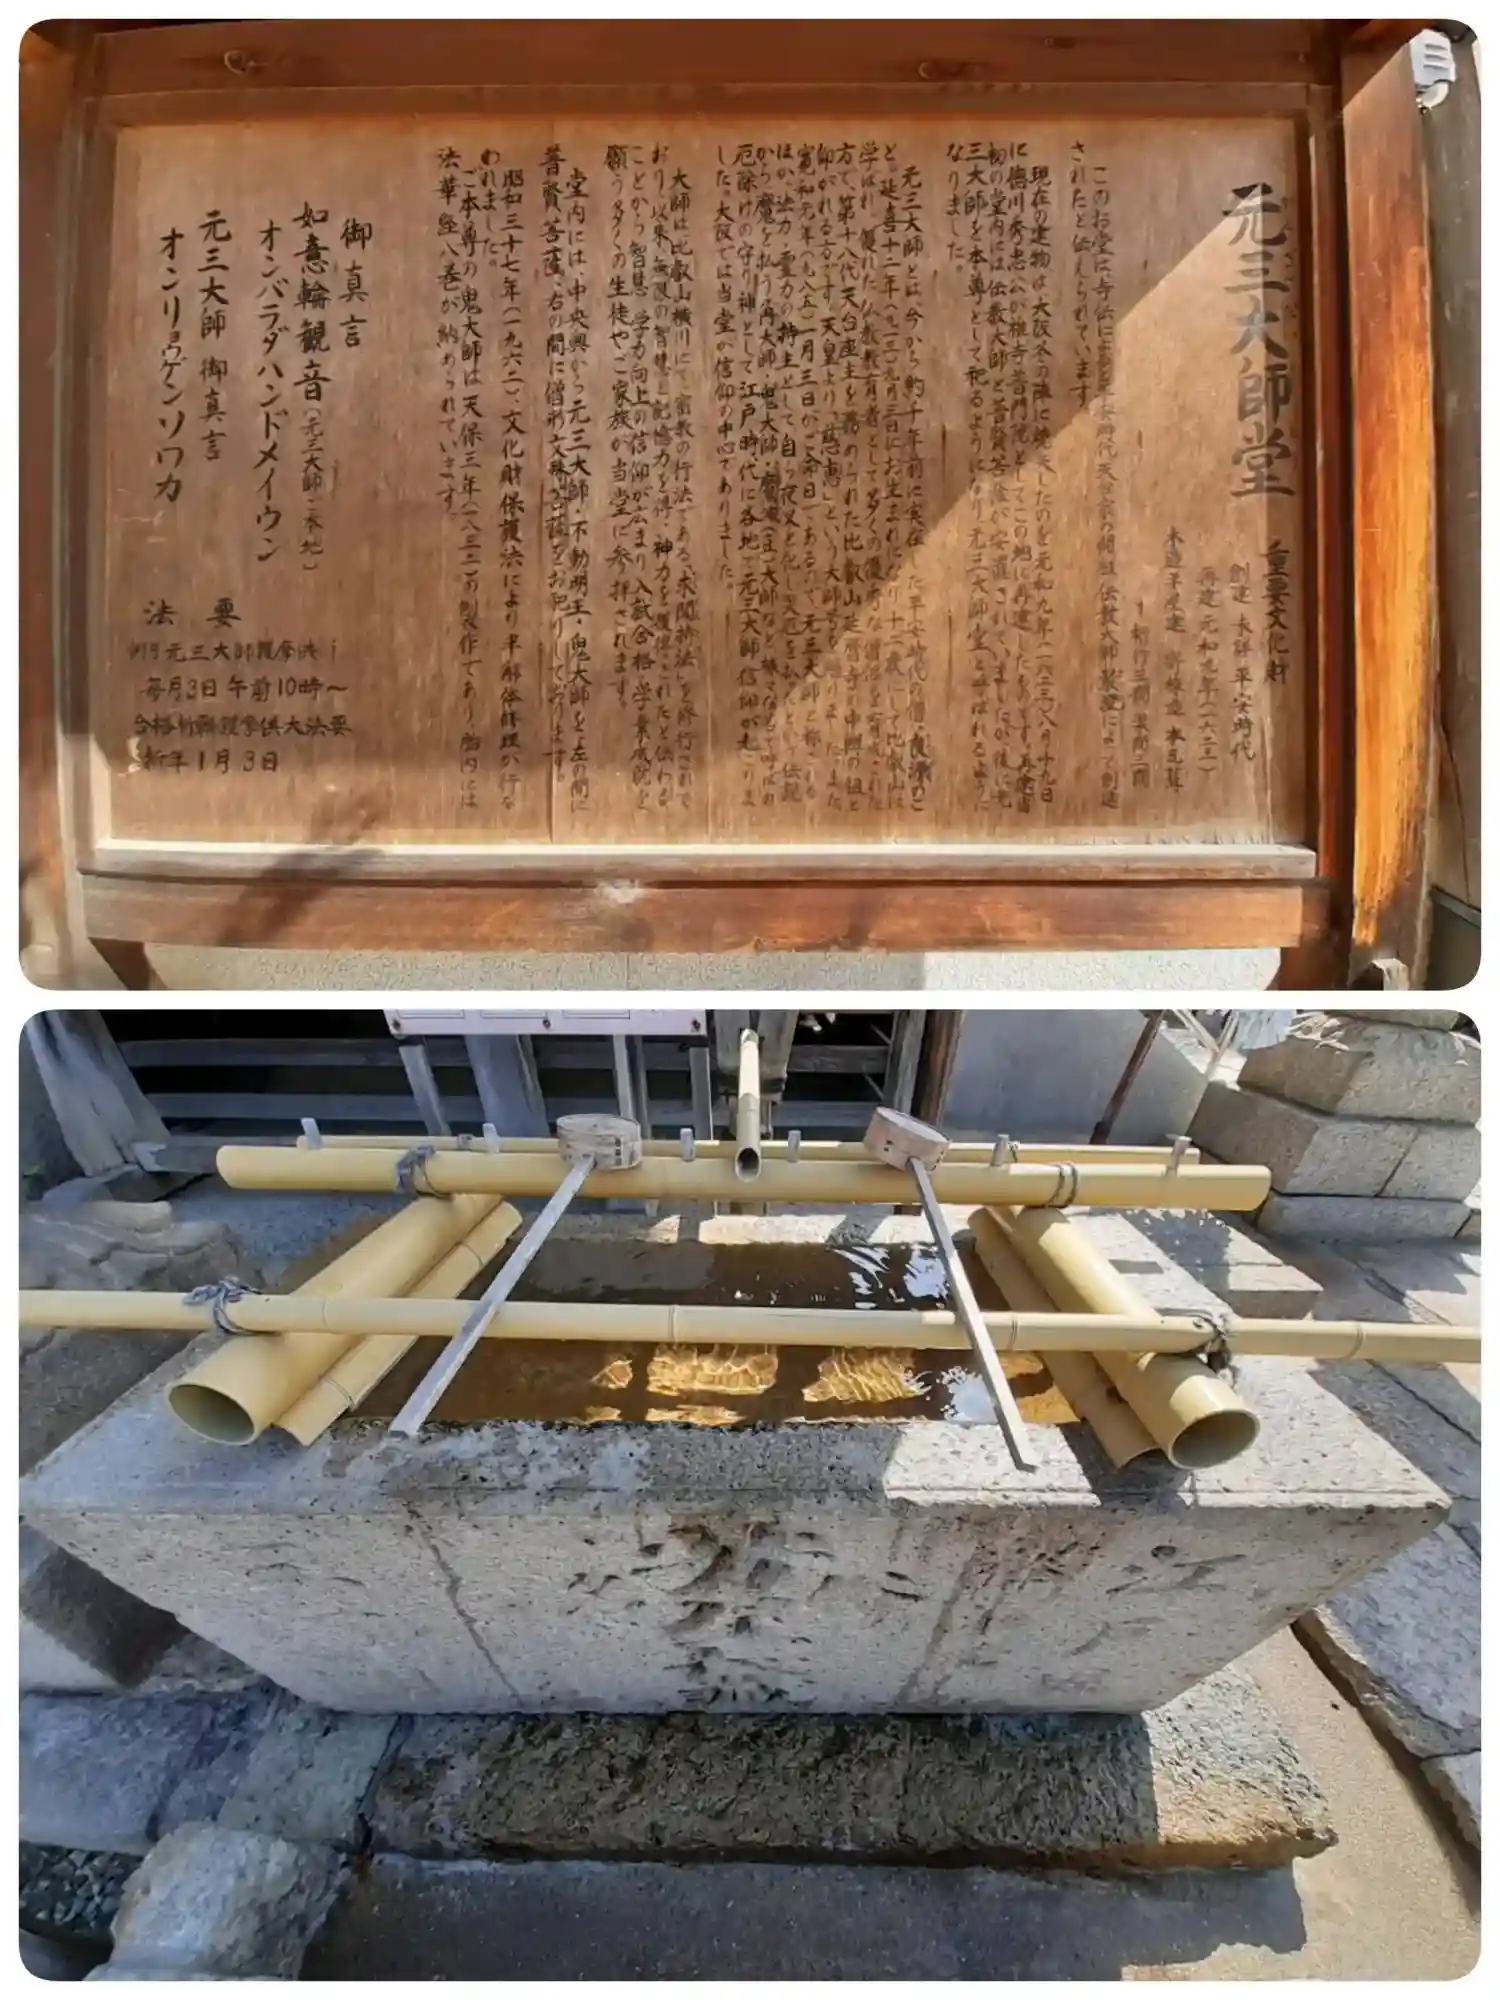 元三大師堂 重要文化財
創建 未詳 平安時代
再建 元和九年(一六二三)
木造平屋建 寄棟造 本瓦葺
桁行三間 梁間三間
このお堂は、寺伝に 平安時代天台宗の開祖・伝教大師 によって創建
されたと伝えられています。
現在の建物は、大阪冬の陣に焼失したのを元和九年(一六二三)八月十九日
に徳川秀忠公が椎寺普門院としてこの地に再建したものです。再建当
初の堂内には伝教大師と普賢菩薩が安置されていましたが、後に元
三大師を本尊として祀るようになり元三大師堂と呼ばれるように
なりました。
元三大師とは、今から約千年前に実在した平安時代の僧・良源のこ
と。延喜十二年(九一二)九月三日にお生まれになり十二歳にして比叡山に
学ばれ、優れた仏教教育者として多くの優秀な僧侶を育成された
方で、第十八代天台座主を務められた比叡山延暦寺の中興の祖と
仰がれる方です。天皇より「慈恵」という大師号を賜りました。また
寛和元年(九八五)一月三日がご命日であるので、元三大師と称される
ほか、法力・霊力の持主として自ら夜叉と化し災厄を払ったという伝説
から、魔を払う角大師・鬼大師・魔滅(豆)大師など様々な名で呼ばれ
厄除けの守り神として江戸時代に各地で元三大師信仰が起こりま
した。大阪では当堂が信仰の中心でありました。
大師は比叡山横川にて、密教の行法である「求聞持法」を修行されて
おり、以来、無限の智慧と記憶力を得、神力を獲得されたと伝わる
ことから智慧・学力向上の信仰が広まり、入試合格・学業成就を
願う多くの生徒やご家族が当堂に参拝されます。
堂内には、中央奥から元三大師・不動明王・鬼大師を、左の間に
普賢菩薩、右の間に僧形文殊菩薩をお祀りしております。
昭和三十七年(一九六二)、文化財保護法により半解体修理が行な
われました。
ご本尊の鬼大師は天保三年(一八三二)の製作であり、胎内には
法華経八巻が納められています。
御真言
如意輪観音(元三大師ご本地)
オンバラダハンドメイウン
元三大師 御真言
オンリョウゲンソワカ
法要
例月元三大師護摩供
毎月3日午前10時～
合格祈願護摩供大法要
新年1月3日